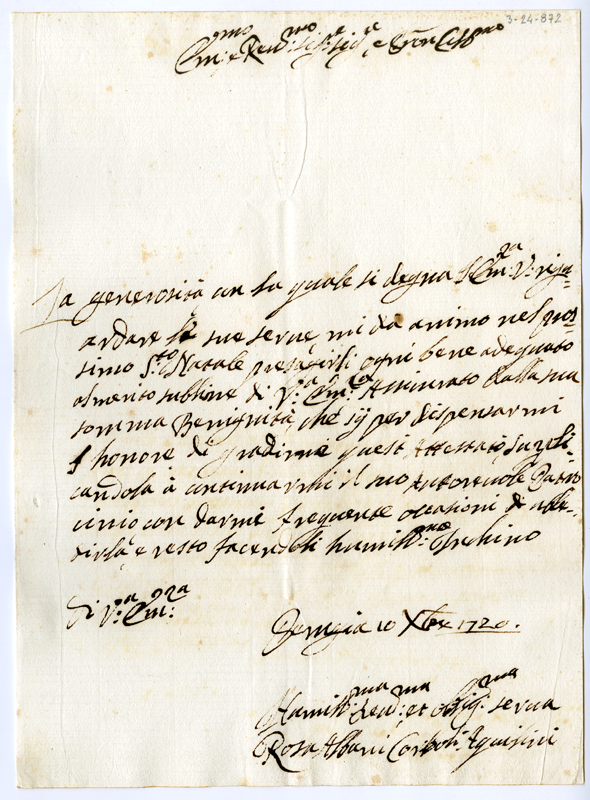 3-24-872
Em.mo e Rev.mo Sig.r Sig.r e Pron Coll.mo
La generosità con la quale si degna l'Em.za V.ra rigu-
ardare le sue serve, mi dà animo nel pros-
simo S.to Natale presagirli ogni bene adequato
al merito sublime di V.ra Em.za Assicurato dalla sua
somma Benignità, che sij per dispensarmi
l'honore di gradirmi quest'Attestato, suppli-
candola à continuarmi il suo Autorevole Patro
cinio con darmi frequente occasioni di obbe-
dirla, e resto facendoli humiliss.mo Inchino
Di V.ra Em.za
Perugia 10 Xbre 1720.
Humiliss.ma Dev.ma et Oblig.ma serva
Rosa Albani